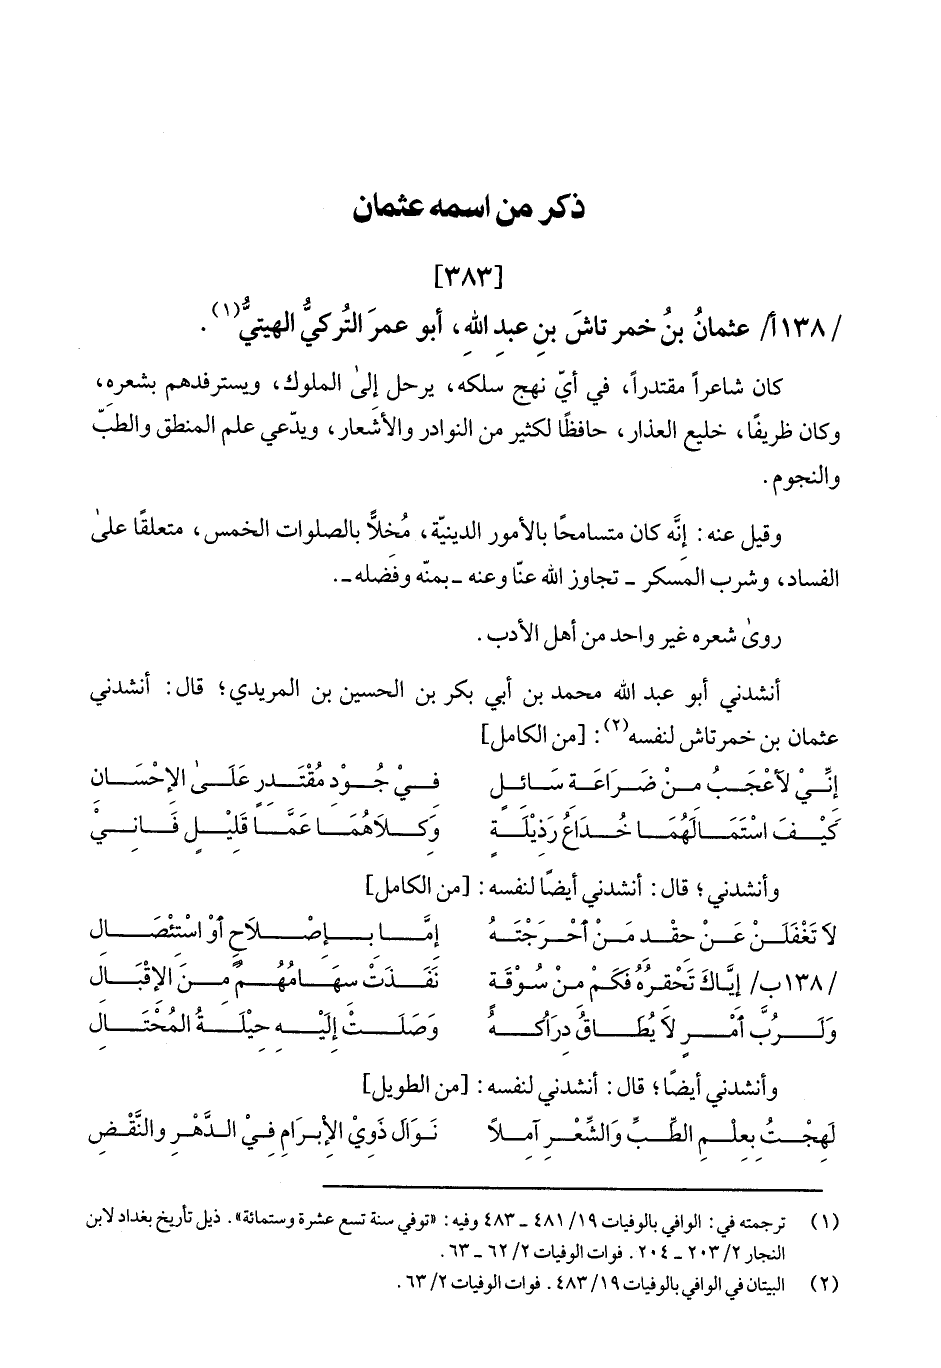 ذكر من اسمه عثمان
[٣٨٣]
/١٣٨أ/ عثمانُ بنُ خمر تاشَ بنِ عبدِ اللهِ، أبو عمرَ التُركيُّ الهيتيُّ(١).
كان شاعراً مقتدراً، في أيّ نهج سلكه، يرحل إلىٰ الملوك، ويسترفدهم بشعرِه،
وكان ظريفًا، خليع العذار، حافظًا لكثير من النوادر والأشعار، ويدّعي علم المنطق والطبّ
والنجوم.
وقيل عنه: إنَّه كان متسامحًا بالأمور الدينيّة، مُخلاًّ بالصلوات الخمسِ، متعلقًا علىٰ
الفساد، وشرب المسكر ـ تجاوز الله عنّا وعنه ـ بمنّه وفضله ـ.
روىٰ شعره غير واحد من أهل الأدب.
أنشدني أبو عبد الله محمد بن أبي بكر بن الحسين بن المريدي؛ قال: أنشدني
عثمان بن خمرتاش لنفسه(٢): [من الكامل]
إنِّيْ لأَعْجَبُ مِنْ ضَرَاعَةِ سَائِلٍ فِيْ جُوْدِ مُقْتَدِرٍ عَلَىٰ الإِحْسَانِ
كَيْفَ اسْتَمَالَهُمَا خُدَاعُ رَذِيْلَةٍ وَكِلاَهُمَا عَمَّا قَلِيْلٍ فَانِيْ
وأنشدني؛ قال: أنشدني أيضًا لنفسه: [من الكامل]
لاَ تَغْفَلَنْ عَنْ حِقْدِ مَنْ أَحْرَجْتَهُ إِمَّا بِإِصْلاَحٍ أَوْ اسْتِئْصَالِ
/١٣٨ب/ إِيَّاكَ تَحْقِرُهُ فَكَمْ مِنْ سُوْقَةٍ نَفَذَتْ سِهَامُهُمُ مِنَ الإِقْبَالِ
وَلَرُبَّ أَمْرٍ لاَ يُطَاقُ دِرَاكُهُ وَصَلَتْ إِلَيْهِ حِيْلَةُ المُحْتَالِ
وأنشدني أيضًا؛ قال: أنشدني لنفسه: [من الطويل]
لَهِجْتُ بِعِلْمِ الطِّبِّ وَالشِّعْرِ آمِلاً نَوَالَ ذَوِيْ الإِبْرَامِ فِيْ الدَّهْرِ وَالنَّقْضِ
(١) ترجمته في: الوافي بالوفيات ١٩/ ٤٨١ ـ ٤٨٣ وفيه: «توفي سنة تسع عشرة وستمائة». ذيل تأريخ بغداد لابن
النجار ٢/ ٢٠٣ ـ ٢٠٤. فوات الوفيات ٢/ ٦٢ ـ ٦٣.
(٢) البيتان في الوافي بالوفيات ١٩/ ٤٨٣. فوات الوفيات ٢/ ٦٣.